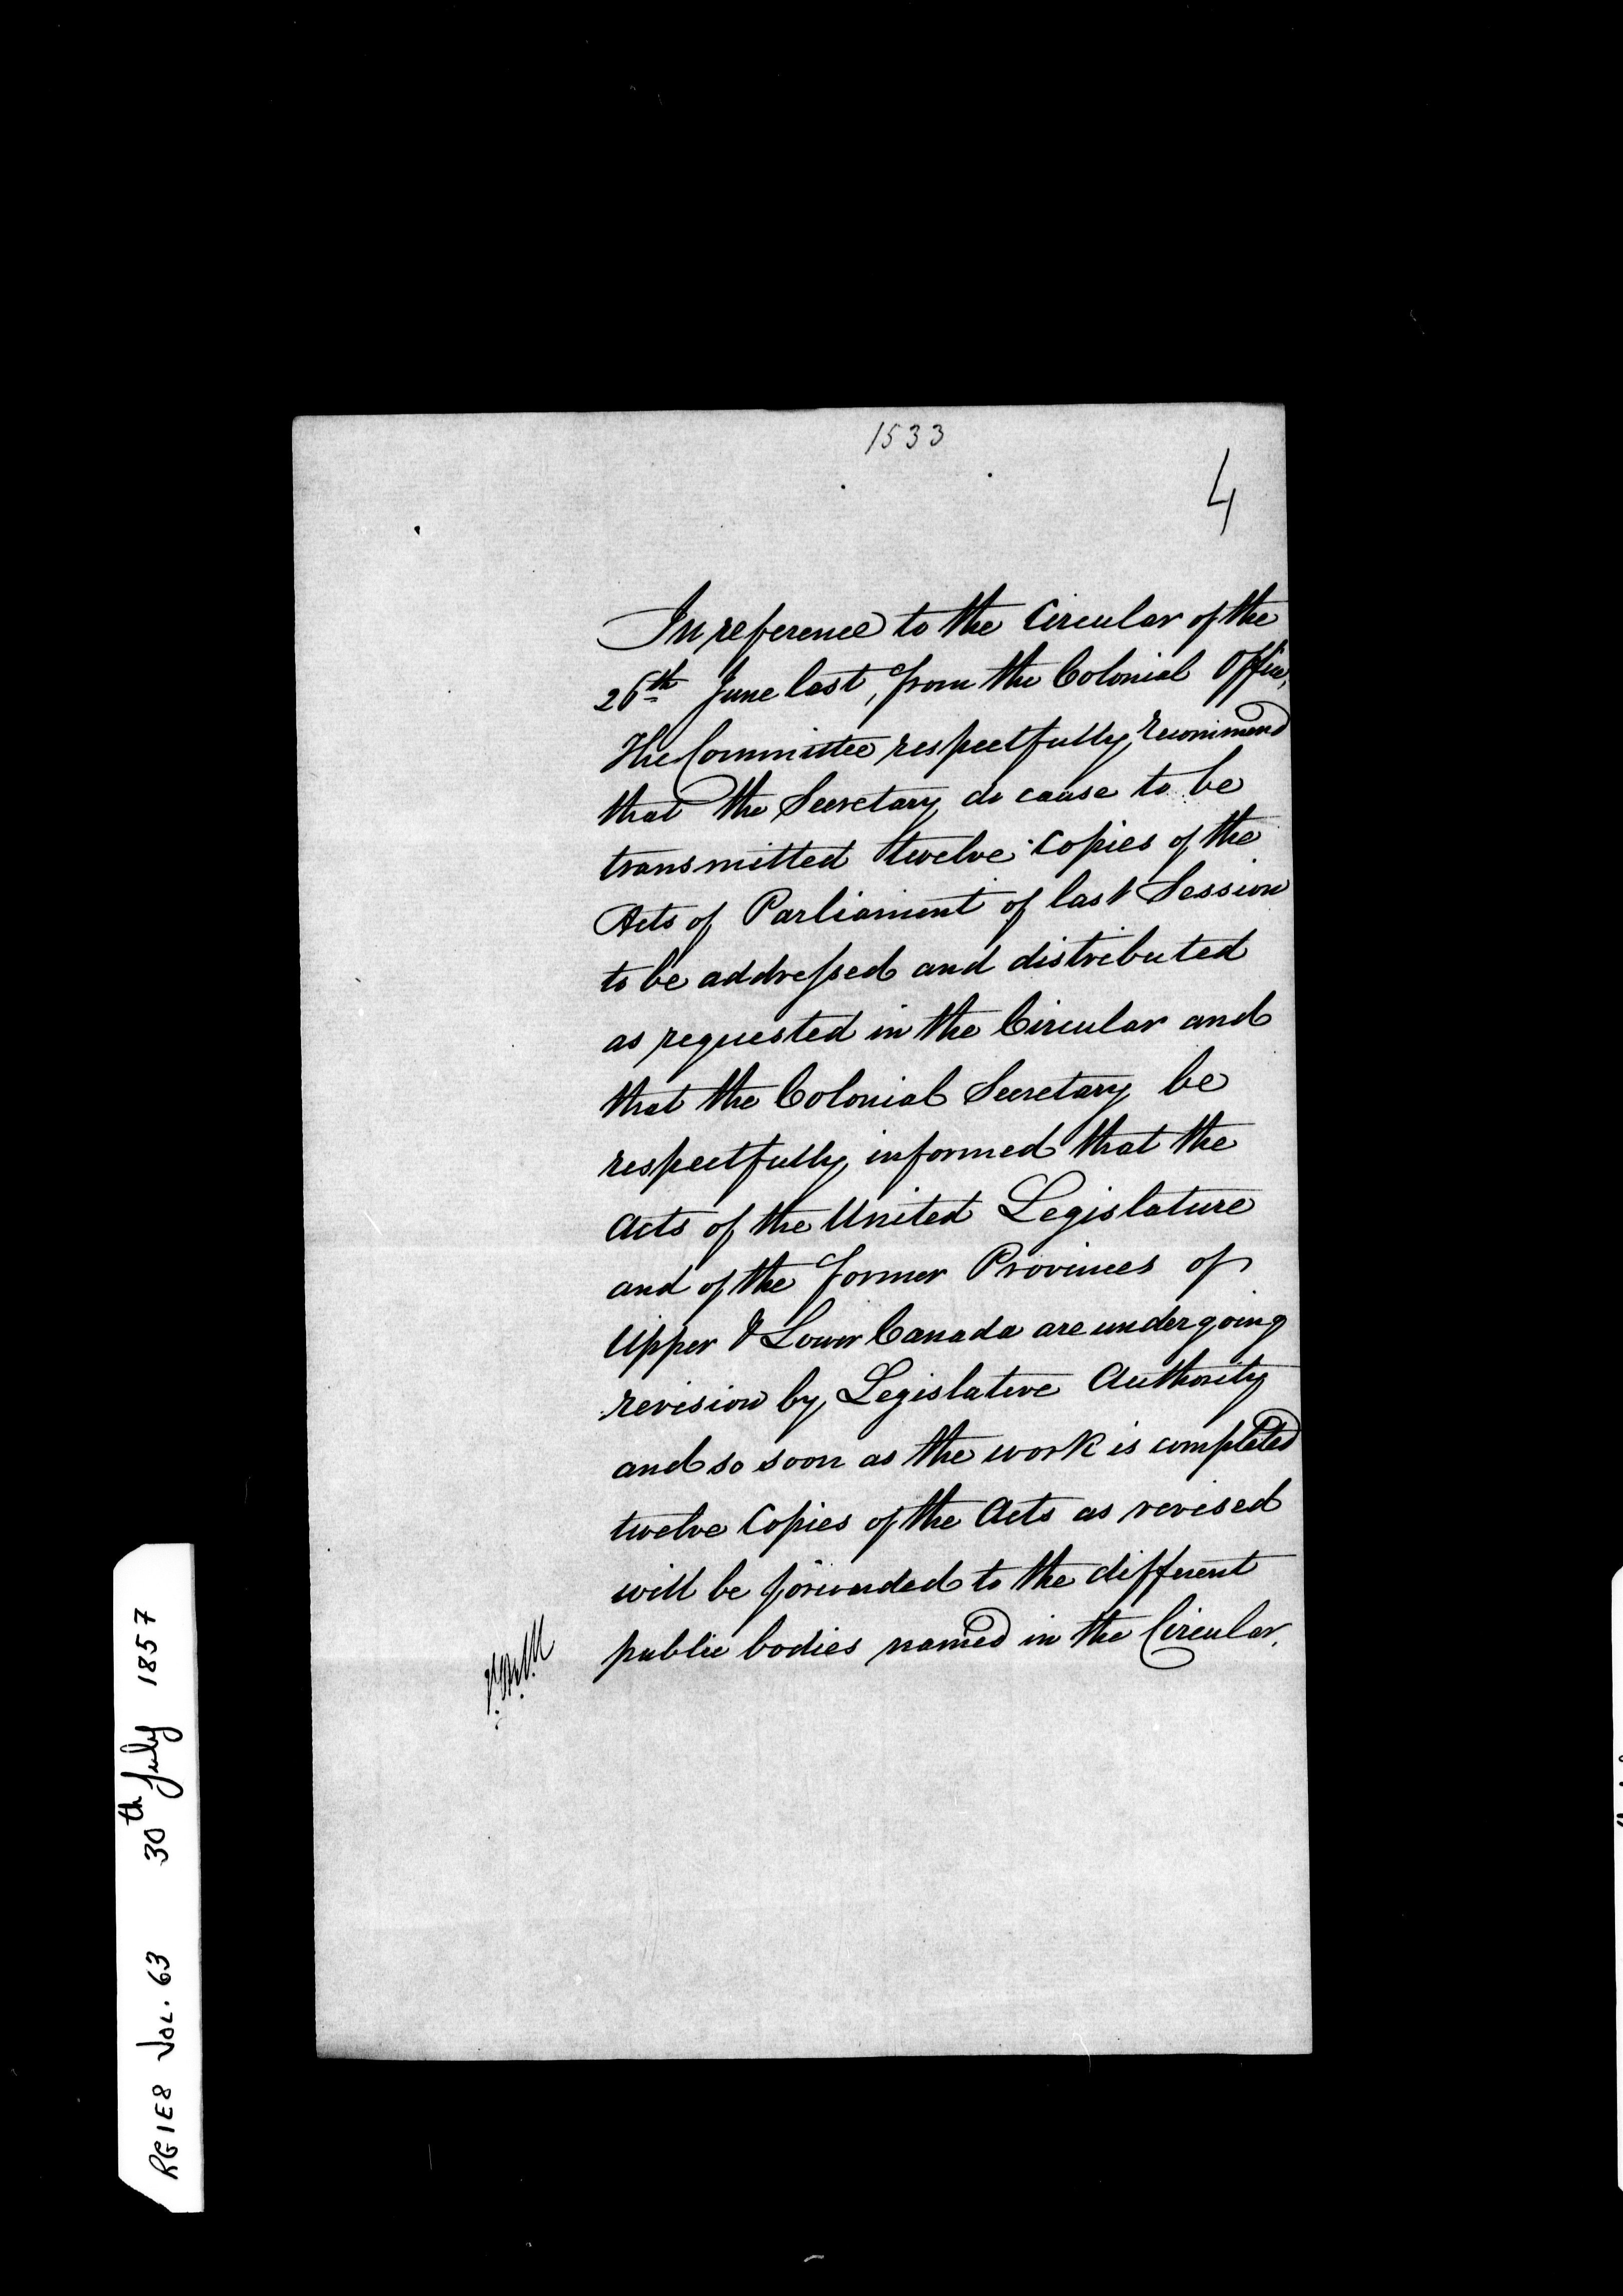 1533
4
In reference to the Circular of the
26th June last, from the Colonial Office,
The Committee respectfully recommend
that the Secretary do cause to be
transmitted twelve Copies of the
Acts of Parliament of last Session
to be addressed and distributed
as requested in the Circular and
that the Colonial Secretary be
respectfully informed that the
Acts of the United Legislature
and of the former Provinces of
Upper & Lower Canada are undergoing
revision by Legislative Authority
and so soon as the work is completed
twelve Copies of the Acts as revised
will be forwarded to the different
public bodies named in the Circular.
RG1E8 VOL. 63 30th July 1857